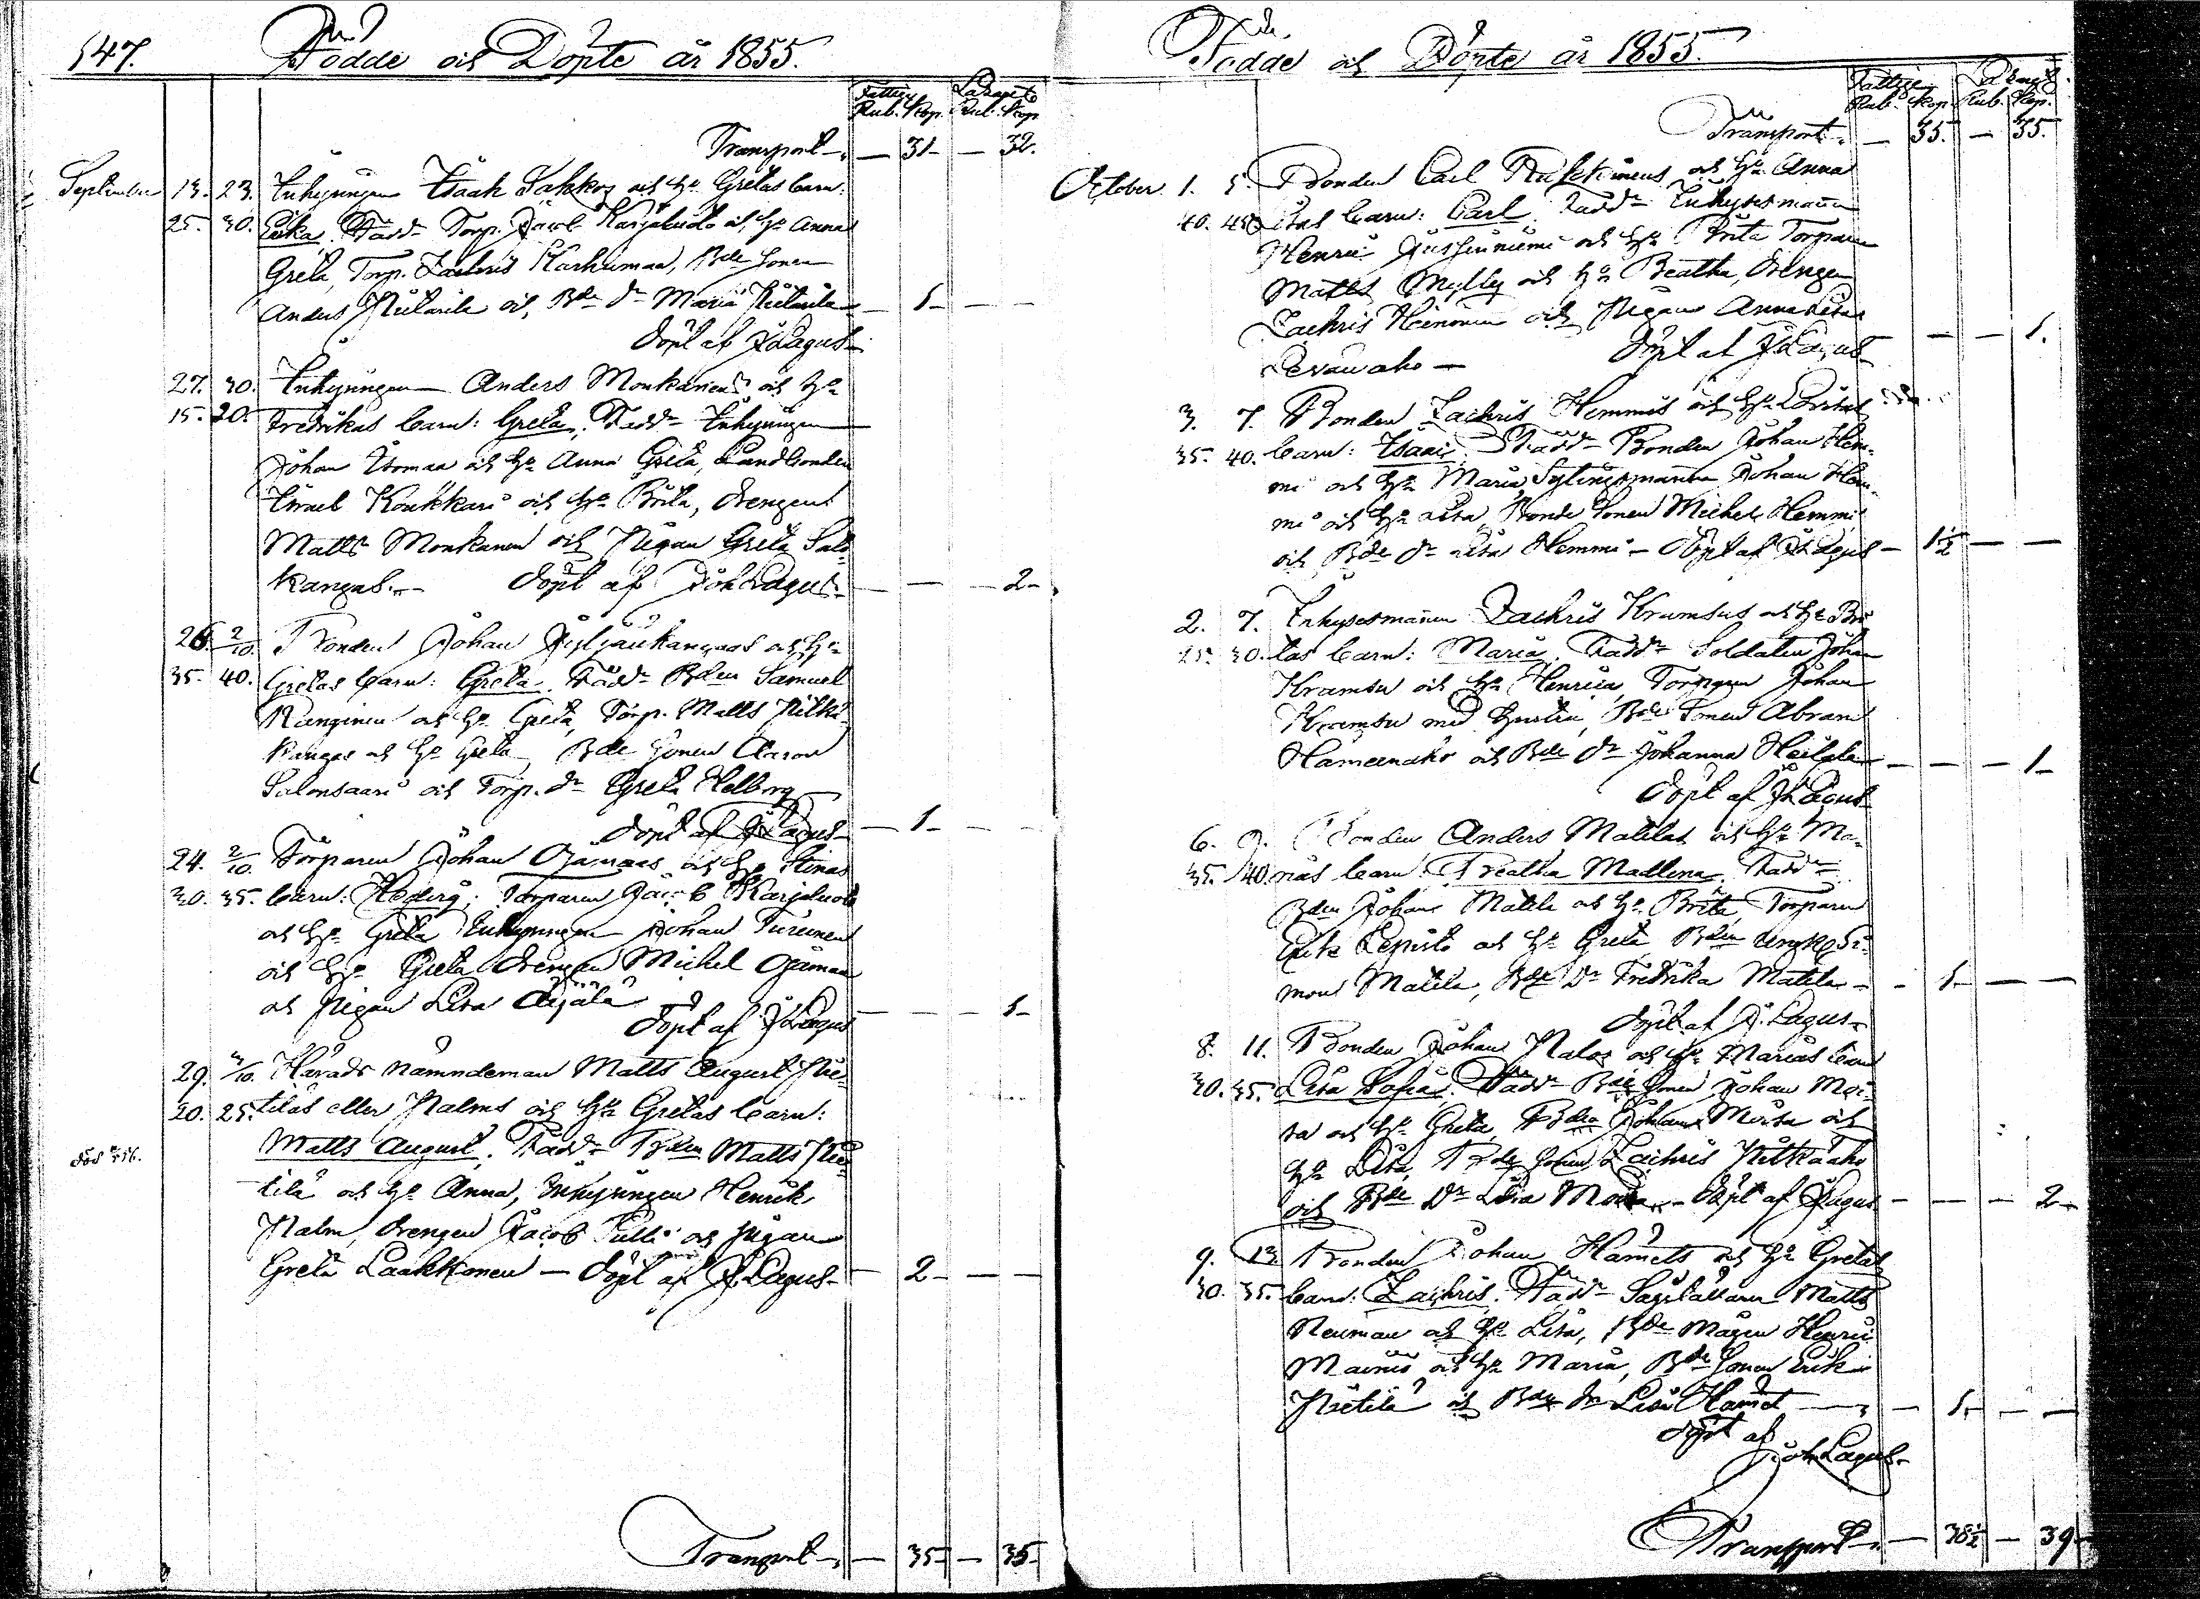 547.
Födde och Döpte år 1855.
Fattige Lazarett
Rub. Kop. Rub. Kop.
Transport — 31 — 32.
September 13. 23. Inhysingen Isaak Sakkos och h:s Gretas barn:
25. 30. Fadd:r Torp. Jacob Karjaluoto och h:s Anna
Greta, Torp. Zachris Karhumaa, B:de Sonen
Anders Pietarila och B:de d:r Maria Pietarila — 1 — —
döpt af J Lagus
27. 30. Inhysingen Anders Monkanens och h:s
15. 20. Fredrikas barn: Greta. Fadd:r Inhysingen
Johan Isomaa och h:s Anna Greta, Landbonden
Israel Koukkari och h:s Brita, drengen
Matts Monkanen och Pigan Greta Salo
kangas. — döpt af Joh Lagus — — — 2
26. 2/10. Bonden Johan och h:s
35. 40. Gretas barn: Greta. Fadd:r B:den Samuel
Kanginen och h:s Greta, Torp. Matts Pitkä
kangas och h:s Greta, B:de Sonen Aaron
Salonsaari och Torp. d:r Greta Helborg
döpt af J Lagus — 1 — —
24. 2/10. Torparen Johan Ojamaas och h:s Stinas
30. 35. barn: Hedvig; Torparen Jacob Karjaluoto
och h:s Greta Inhysingen Johan Turunen
och h:s Greta drengen Michel Ojamaa
och Pigan Lisa Äijälä
döpt af J Lagus — — — 1
29. 4/10. Härads nämndeman Matts August Pie
20. 25. tiläs eller Palms och h:s Gretas barn:
Matts August. Fadd:r B:den Matts Pie
död
tilä och h:s Anna, Inhysingen Henrik
Palm, drengen Jacob Pulli och pigan
Greta Laakkonen — döpt af J Lagus — 2 — —
Transport — 35 — 35
Födde och Döpte år 1855.
Fattige Lazarett
Rub. Kop. Rub. Kop.
Transport — 35. — 35.
October. 1. 5. Bonden Carl och h:s Anna
40. 45. Lisas barn: Carl. Fadd:r Inhysesmann
Henric Jussinniemi och h:s Brita Torparen
Matts Mylly och h:s Beatha, drengen
Zachris Heinonen och Pigan Anna Lisa
Levauaho — döpt af J Lagus — — — 1.
3. 7. Bonden Zachris Hemmis och h:s Lovisas
35. 40. barn: Isaac. Fadd:r Bonden Johan Hem-
mi och h:s Maria, Sytingsmannen Johan Hem-
mi och h:s Lisa, Bonde Sonen Michel Hemmi
och B:de d:r Lisa Hemmi — döpt af J Lagus — 1½ — —
2. 7. Inhysesmannen Zachris Kramsus och h:s Bri
25. 30. tas barn: Maria. Fadd:r Soldaten Johan
Kramsu och h:s Henrica, Torparen Johan
Kramsu med hustru, B:de Sonen Abram
Hameenaho och B:de d:r Johanna Heikala — — — 1
döpt af J Lagus
6. 9. Bonden Anders Matilas och h:s Ma-
35. 40. rias barn Beatha Madlena. Fadd:r
B:den Johan Matila och h:s Brita, Torparen
Erik Lepistö och h:s Greta B:den ungk. Si-
mon Matila, B:de D:r Fredrika Matila — 1 — —
döpt af J. Lagus
8. 11. Bonden Johan Palos och h:s Marias barn
30. 35. Lisa Sofia. Fadd:r B:de Sonen Johan Moi-
sa och h:s Greta, B:den Johan Moisa och
h:s Lisa, B:de Sonen Zachris Pitkäaho
och B:de D:r Lisa Moisa — döpt af J Lagus — — — 2
9. 13. Bonden Johan Hamets och h:s Gretas
30. 35. barn: Zachris. Fadd:r Matts
Neuman och h:s Lisa, B:de Mågen Henric
och h:s Maria, B:de Sonen Erik
Pietilä och B:de d:r Lisa Hamet — 1 — —
döpt af
Joh Lagus
Transport — 38½ — 39